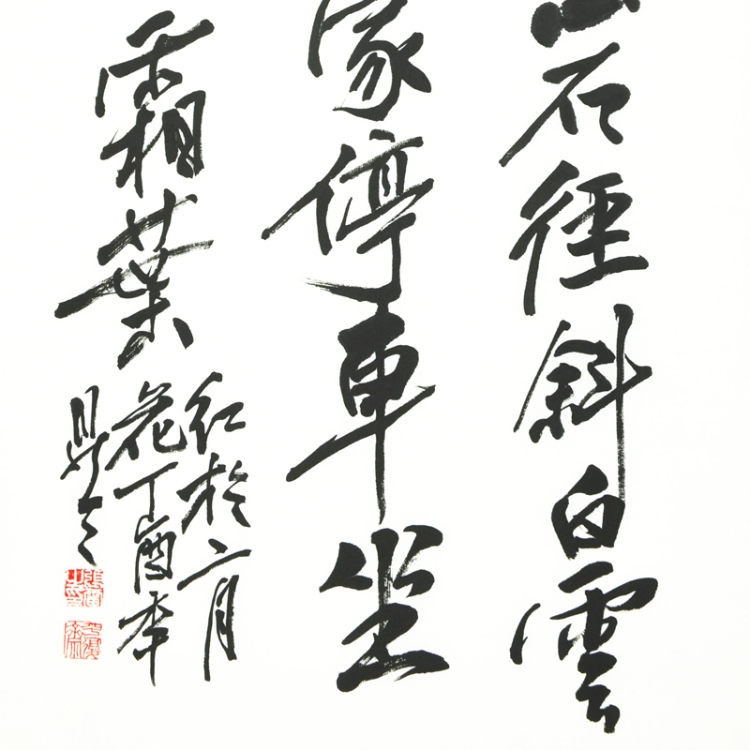 石徑斜白雲
家停車坐
霜葉
紅於二月
花丁酉年